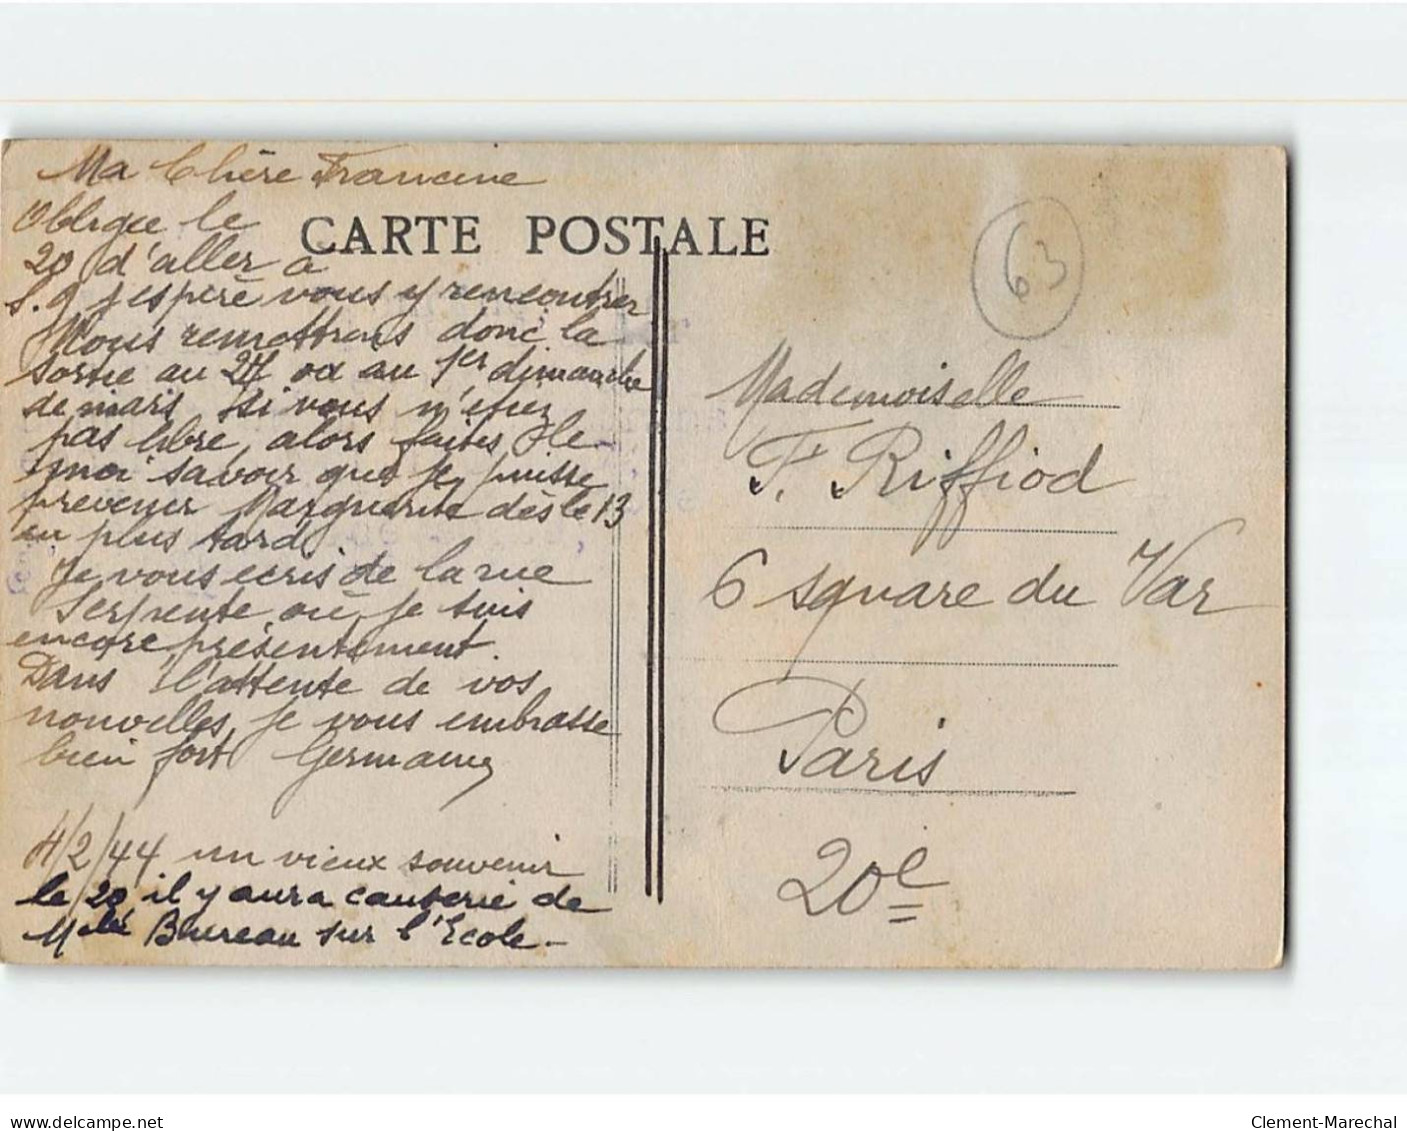 Ma Chère Francine
CARTE POSTALE
Obligée le
20 d'aller à
S. G j'espère vous y rencontrer
Nous remettrons donc la
sortie au 27 ou au 1er dimanche
de mars si vous n'etez
pas libre, alors faites le
moi savoir que je puisse
prévenir Marguerite dès le 13
au plus tard
Je vous écris de la rue
Serpente où je suis
encore présentement.
Dans l'attente de vos
nouvelles je vous embrasse
bien fort Germaine
4/2/44 un vieux souvenir
le 20 il y aura causerie de
Melle Bureau sur l'Ecole -
63
Mademoiselle
F. Riffiod
6 square du Var
Paris
20e
delcampe.net
Clement-Marechal